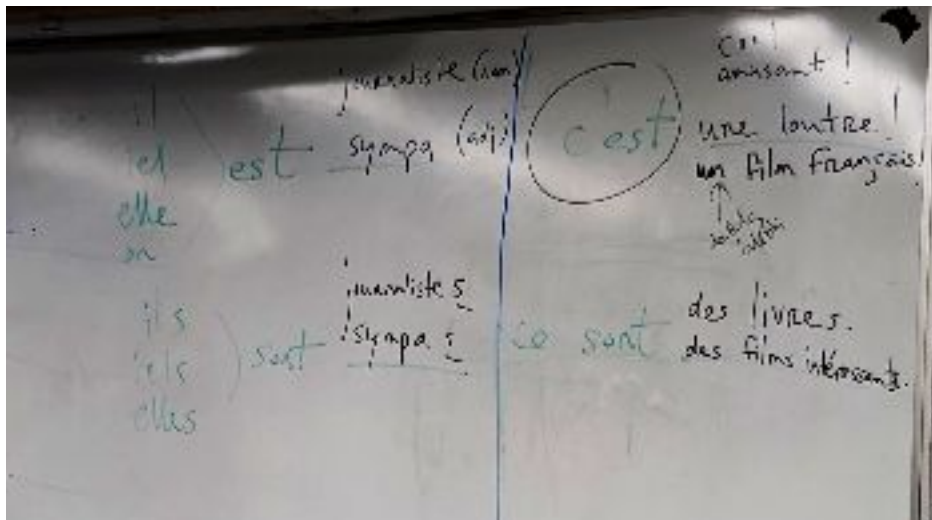 il
iel
elle
on
est
journaliste (nom)
sympa (adj)
ils
iels
elles
sont
journalistes
sympas
c'est
cool
amusant !
une loutre !
un film français.
ce sont
des livres.
des films intéressants.